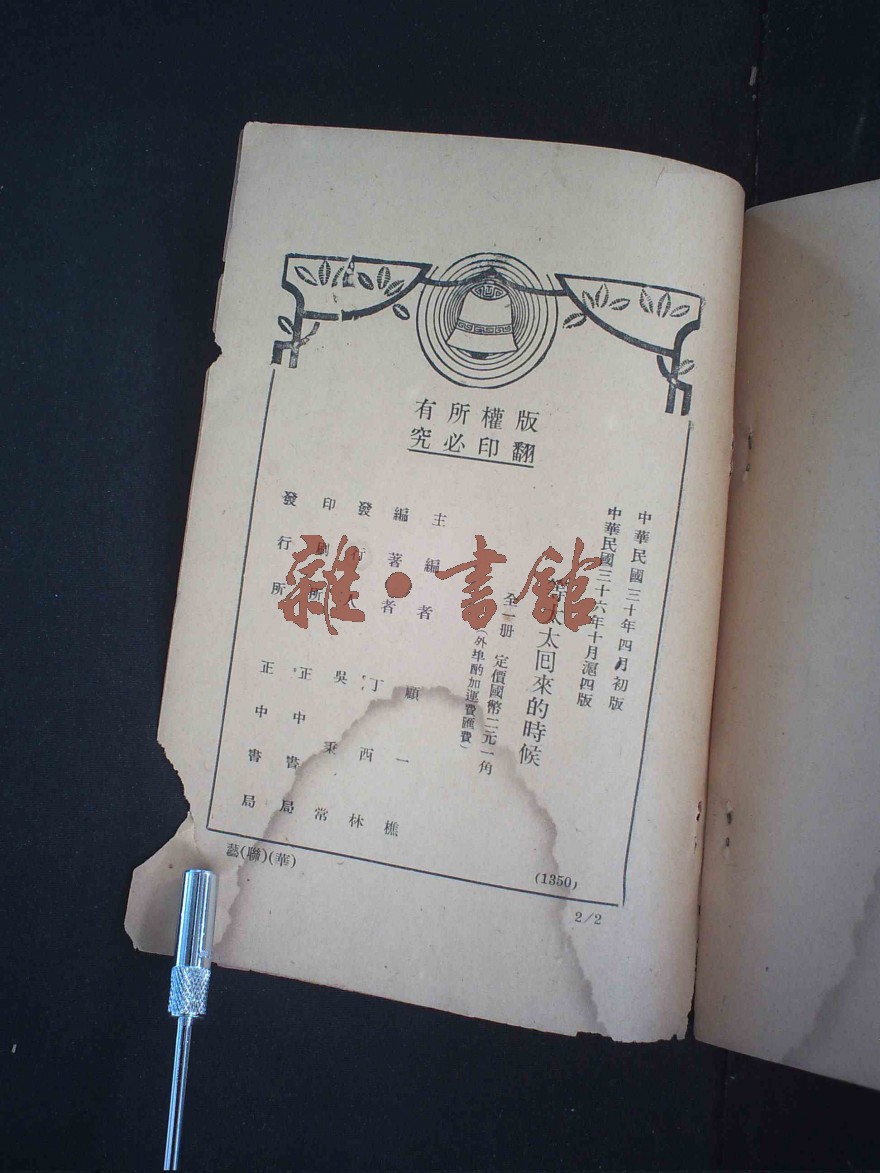 版權所有
翻印必究
中華民國三十年四月初版
中華民國三十六年十月滬四版
等太太回來的時候
全一册 定價國幣二元一角
(外埠酌加運費匯費)
主編者 顧一樵
編著者 丁西林
發行人 吳秉常
印刷所 正中書局
發行所 正中書局
(1350)
藝(聯)(華)
2/2
雜·書館